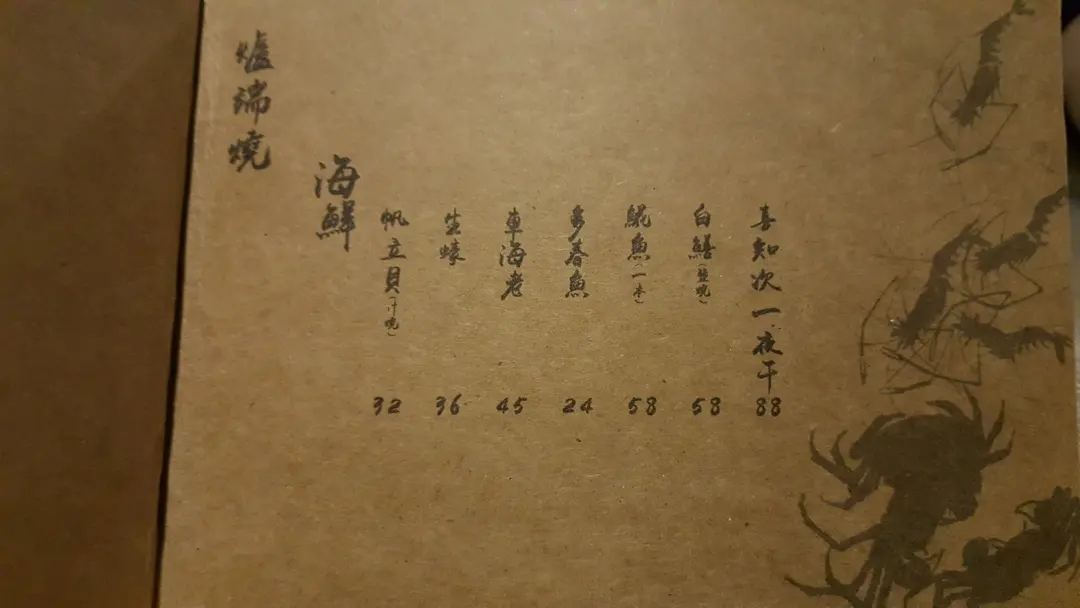 爐端燒
海鮮
帆立貝(汁燒) 32
生蠔 36
車海老 45
多春魚 24
鯤魚(一本) 58
白鱔(鹽燒) 58
喜知次一夜干 88